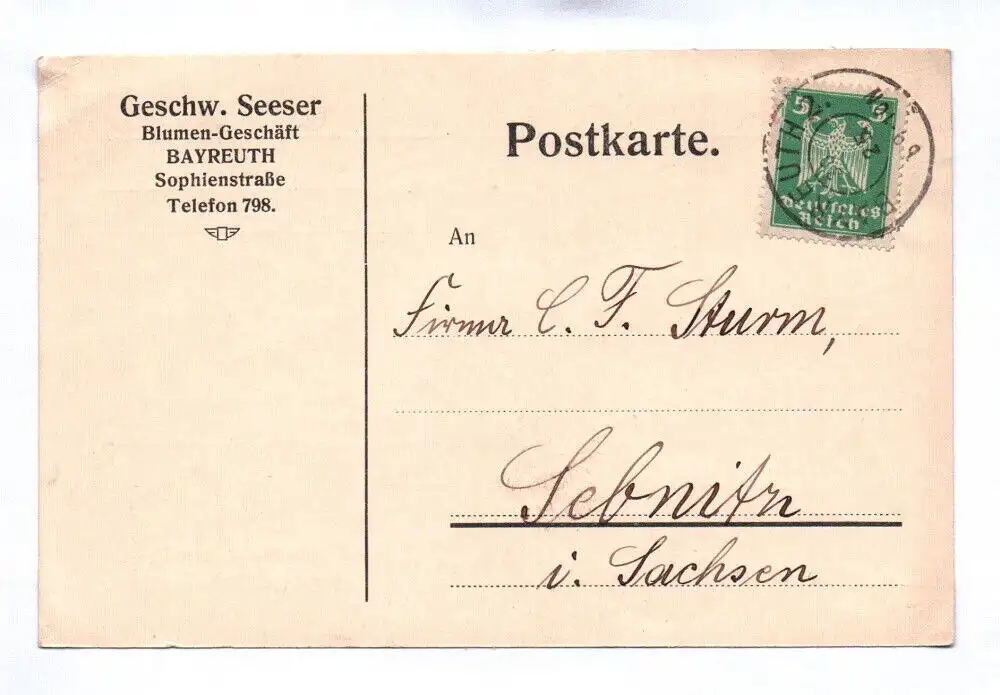 Geschw. Seeser
Blumen-Geschäft
BAYREUTH
Sophienstraße
Telefon 798.
Postkarte.
5 5
Deutsches
Reich
NOV.
An
Firma C. F. Sturm,
Sebnitz
i. Sachsen